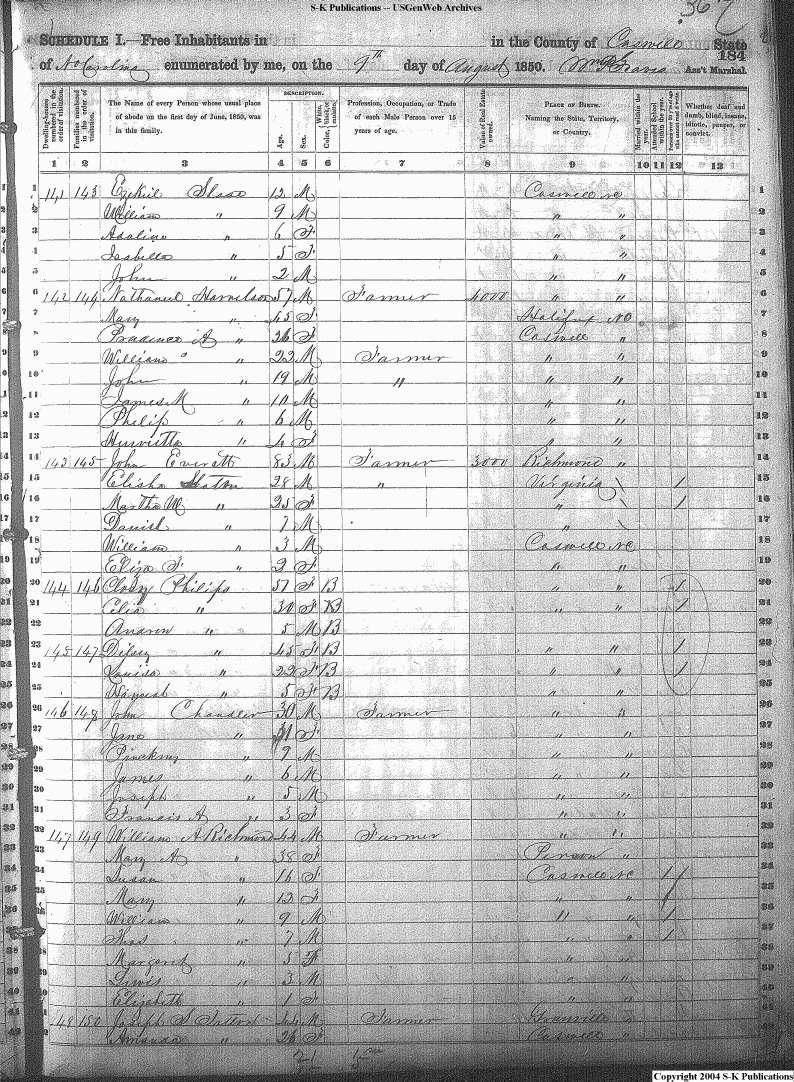 S-K Publications -- USGenWeb Archives
367
SCHEDULE I.—Free Inhabitants in in the County of Caswell State
184
of No Carolina enumerated by me, on the 9th day of August 1850. Ass't Marshal.
Dwelling-houses numbered in the order of visitation.
Families numbered in the order of visitation.
The Name of every Person whose usual place of abode on the first day of June, 1850, was in this family.
DESCRIPTION.
Age.
Sex.
White, black, or mulatto.
Color,
Profession, Occupation, or Trade of each Male Person over 15 years of age.
Value of Real Estate owned.
PLACE OF BIRTH.
Naming the State, Territory, or Country.
Married within the year.
Attended School within the year.
Whether deaf and dumb, blind, insane, idiotic, pauper, or convict.
1 2 3 4 5 6 7 8 9 10 11 12 13
1 141 143 Ezekiel 12 M Caswell NC 1
2 William " 9 M " " 2
3 Adaline " 6 F " " 3
4 Isabella " 5 F " " 4
5 John " 2 M " " 5
6 142 144 Nathaniel Harrelson 57 M Farmer 4000 " " 6
7 Mary " 45 F Halifax NC 7
8 Prudence A " 26 F Caswell " 8
9 William " 22 M Farmer " " 9
10 John " 19 M " " " 10
11 James M " 10 M " " 11
12 Philip " 6 M " " 12
13 Henrietta " 4 F " " 13
14 143 145 John Everett 83 M Farmer 3000 Richmond " 14
15 Elisha 28 M " Virginia \ / 15
16 Martha W " 25 F " \ / 16
17 Daniel " 7 M " \ 17
18 William " 3 M Caswell NC 18
19 Eliza F " 2 F " " 19
20 144 146 Philips 57 F B " " / 20
21 Celia " 30 F B " " / 21
22 " 5 M B 22
23 145 147 Dilsey " 45 F B " " / 23
24 Louisa " 22 F B " " / 24
25 " 5 F B " " 25
26 146 148 John Chandler 30 M Farmer " " 26
27 Jane " 31 F " 27
28 Pinckney " 9 M " " 28
29 James " 6 M " " 29
30 Joseph " 5 M " " 30
31 Francis A " 3 F " " 31
32 147 149 William A Richmond 44 M Farmer " " 32
33 Mary A " 38 F Person " 33
34 Susan " 16 F Caswell NC / 34
35 Mary " 12 F " " / 35
36 William " 9 M " " / 36
37 Thos " 7 M " " / 37
38 Margaret " 5 F " " 38
39 Lewis " 3 M " " 39
40 Elizabeth " 1 F " " 40
41 148 150 Joseph S M Farmer Granville " 41
42 Amanda " 26 F Caswell " 42
Copyright 2004 S-K Publications